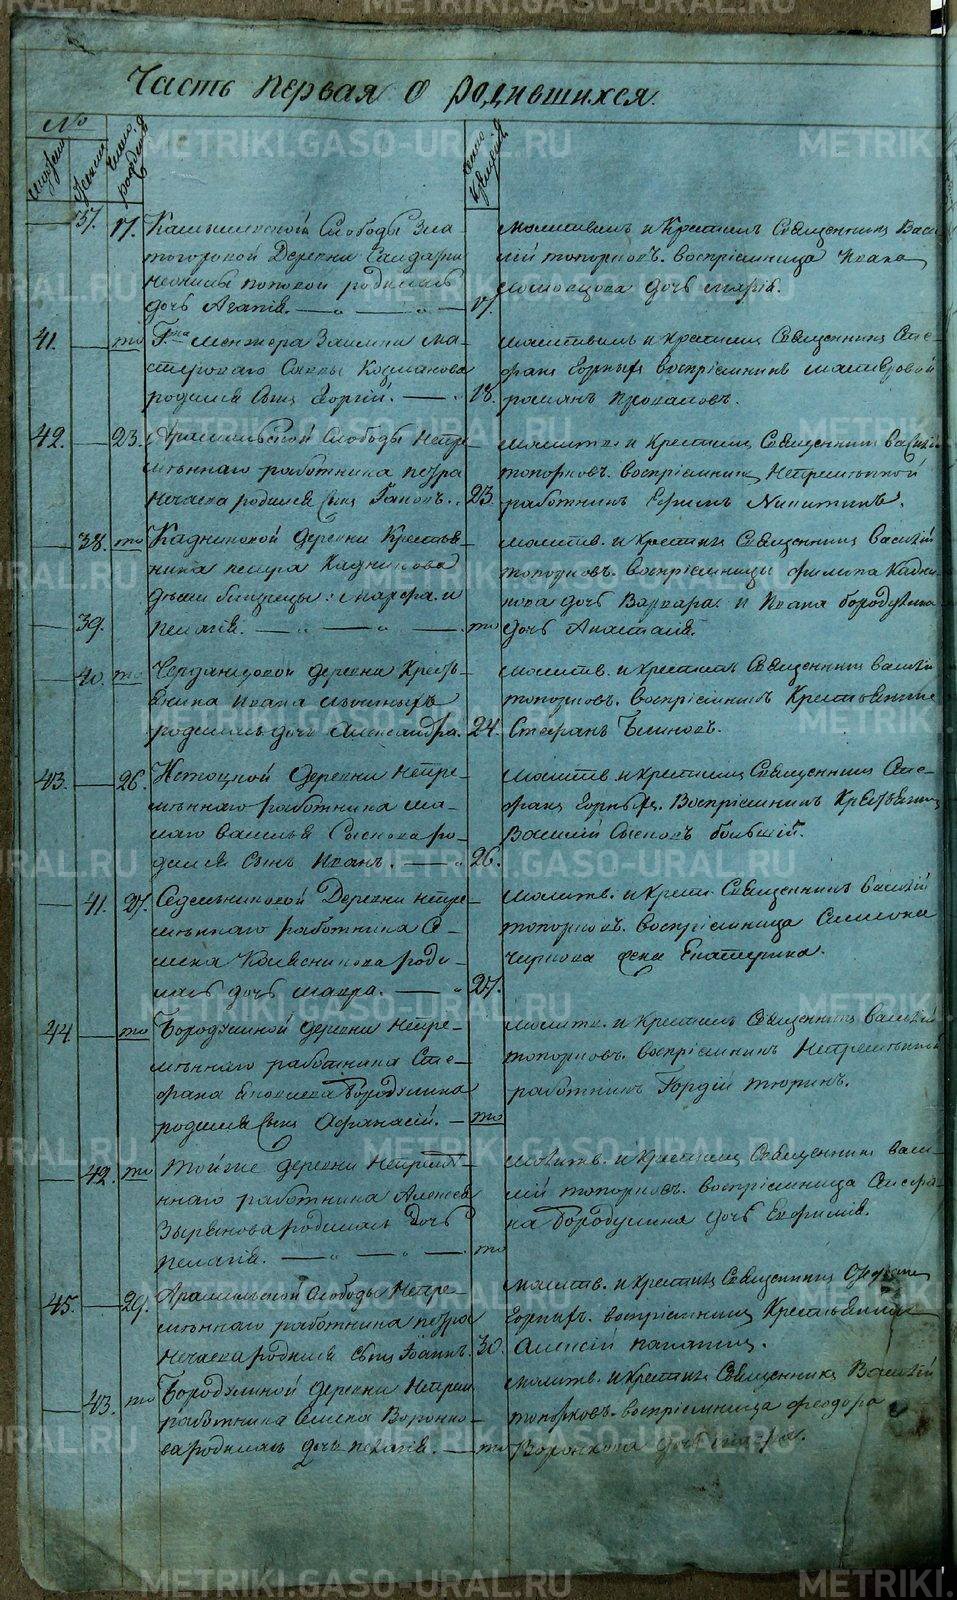 Часть первая о родившихся.
№
мужеска
женска
число рождения
число крещения
37. 17. Камышевской Слободы
Деревни
поповой родилась
дочь Агапия.
17.
молитвилъ и Крестилъ Священникъ Васи-
лій топорковъ. воспріемница Ивана
дочь марія.
41. то Гна межмера Заимки ма-
стероваго Саввы Козманова
родился Сынъ Георгій.
18.
молитвилъ и Крестилъ Священникъ Сте-
фанъ воспріемникъ мастеровой
романъ
42. 23. Арамильской Слободы Непре-
мѣннаго работника петра
Нечаева родился Сынъ
23.
молитв. и Крестилъ Священникъ Василій
топорковъ. воспріемникъ Непремѣнной
работникъ Никитинъ.
38. то Кадниковой деревни Крестья-
нина петра Кадникова
дѣти близнецы: марфа. и
39. пелагія.
то
молитв. и Крестилъ Священникъ Василій
топорковъ. Воспріемницы филипа Кадни-
кова дочь Варвара. и Ивана бородулина
дочь Анастасія.
40. то деревни Кресть-
янина Ивана
родилась дочь Александра.
24.
молитв. и Крестилъ Священникъ Василій
топорковъ. Воспріемникъ Крестьянинъ
Стефанъ Блиновъ.
43. 26. деревни Непре-
мѣннаго работника ма-
лаго василья Сыскова ро-
дился Сынъ Иванъ.
26.
молитв. и Крестилъ Священникъ Сте-
фанъ Воспріемникъ Крестьянинъ
Василій большій.
41. 27. Седельниковой Деревни непре-
мѣннаго работника Се-
мена Колясникова роди-
лась дочь мавра.
27.
молитв. и Крести. Священникъ Василій
топорковъ. воспріемница Симеона
жена Екатерина.
44. то Бородулиной деревни Непре-
мѣннаго работника Сте-
фана Яковлева Бородулина
родился Сынъ Афанасій.
то
молитв. и Крестилъ Священникъ Василій
топорковъ. воспріемникъ Непремѣнный
работникъ Гордій тюринъ.
42. то той же деревни Непремѣ-
ннаго работника Алексея
Зырянова родилась Дочь
пелагія.
то
молитв. и Крестилъ Священникъ васи-
лій топорковъ. воспріемница Стефа-
на Бородулина дочь Евфимія.
45. 29. Арамильской Слободы Непре-
мѣннаго работника петра
Нечаева родился Сынъ Іоаннъ.
30.
молитв. и Крестилъ Священникъ Стефанъ
воспріемникъ Крестьянинъ
Алексій
43. то Бородулиной деревни Непрем.
работника Семена Воронко-
ва родилась дочь пелагія.
то
молитв. и Крестилъ Священникъ Василій
топорковъ. воспріемница феодора
Воронкова дочь
METRIKI.GASO-URAL.RU